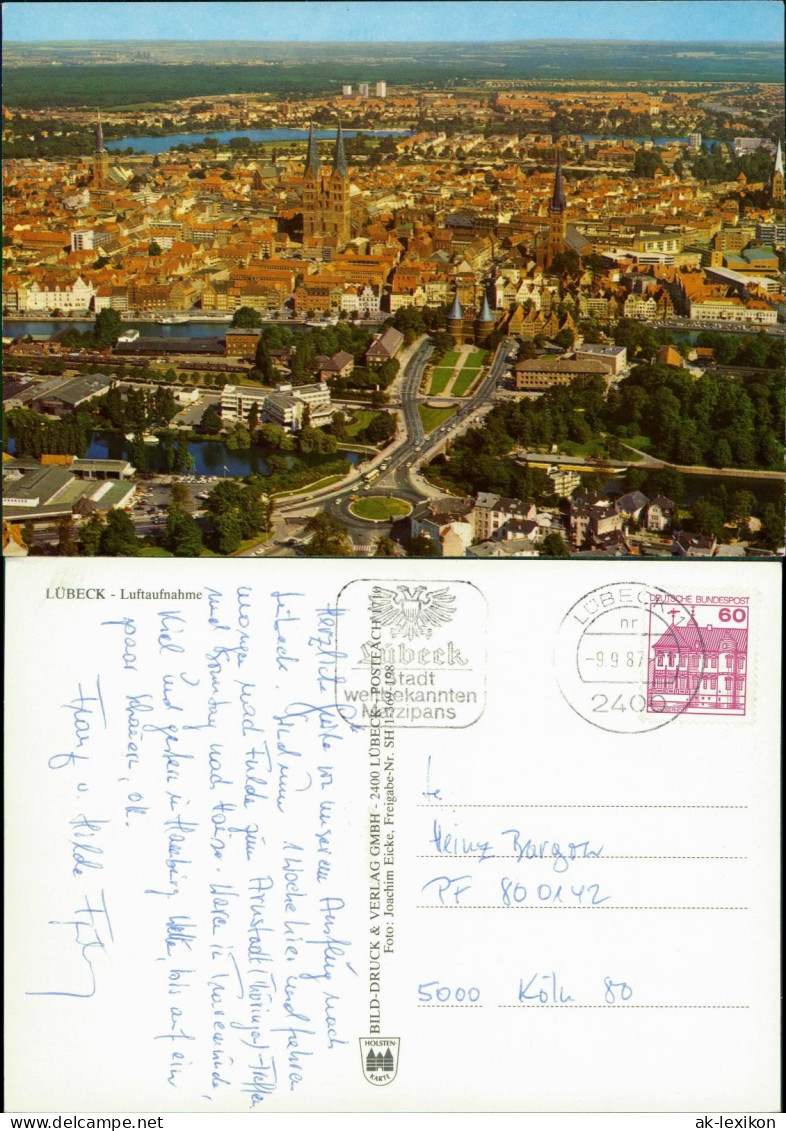 LÜBECK - Luftaufnahme
Herzliche Grüße von unserem Ausflug nach
Lübeck. Sind nun 1 Woche hier und fahren
morgen nach Fulda zum Arnstadt (Thüringen)-Treffen
und Sonntag nach Hause. Waren in Travemünde,
Kiel und gestern in Hamburg. Wetter, bis auf ein
paar Schauern, ok.
Franz u. Hilde
BILD-DRUCK & VERLAG GMBH - 2400 LÜBECK - POSTFACH 1719
Foto: Joachim Eicke, Freigabe-Nr. SH 1569-198
HOLSTEN-
KARTE
Lübeck
Stadt
weltbekannten
Marzipans
LÜBECK 1
nr
-9.9.87
2400
DEUTSCHE BUNDESPOST
60
Heinz Bargow
PF 800142
5000 Köln 80
ak-lexikon